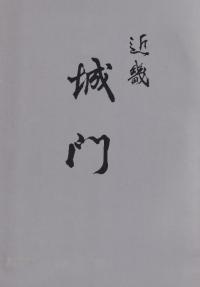 近畿
城門